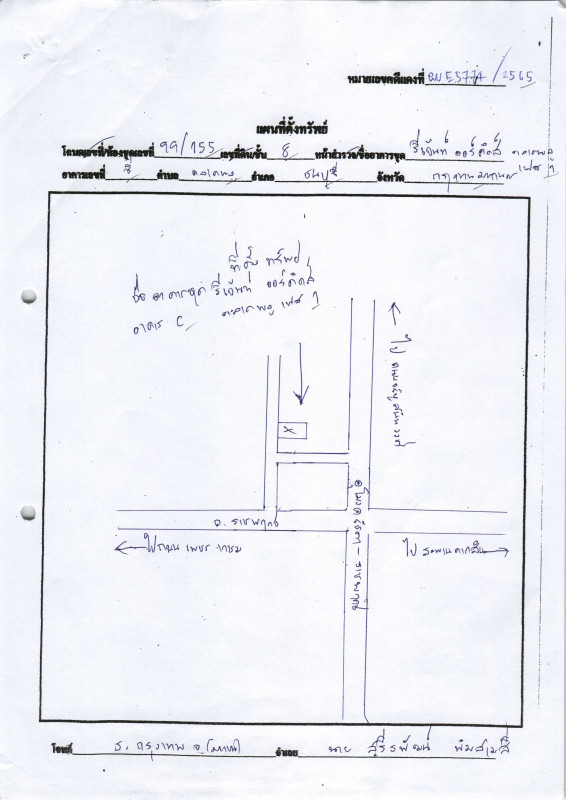 หมายเลขคดีแดงที่ ผบE5774/2565
แผนที่ตั้งทรัพย์
โฉนดเลขที่/ห้องชุดเลขที่ 99/155 เลขที่ดิน/ชั้น 8 หน้าสำรวจ/ชื่ออาคารชุด รีเจ้นท์ ออร์คิดส์ ตลาดพลู เฟส 1
อาคารเลขที่ ซี ตำบล ตลาดพลู อำเภอ ธนบุรี จังหวัด กรุงเทพมหานคร
ที่ตั้งทรัพย์
ชื่ออาคารชุด รีเจ้นท์ ออร์คิดส์
อาคาร C ตลาดพลู เฟส 1
ไป ถนนจรัญสนิทวงศ์
X
อุโมงค์รัชดา - ราชพฤกษ์
ถ. ราชพฤกษ์
ไปถนนเพชรเกษม
ไป สะพานตากสิน
โจทก์ ธ. กรุงเทพ จ. (มหาชน) จำเลย นาย